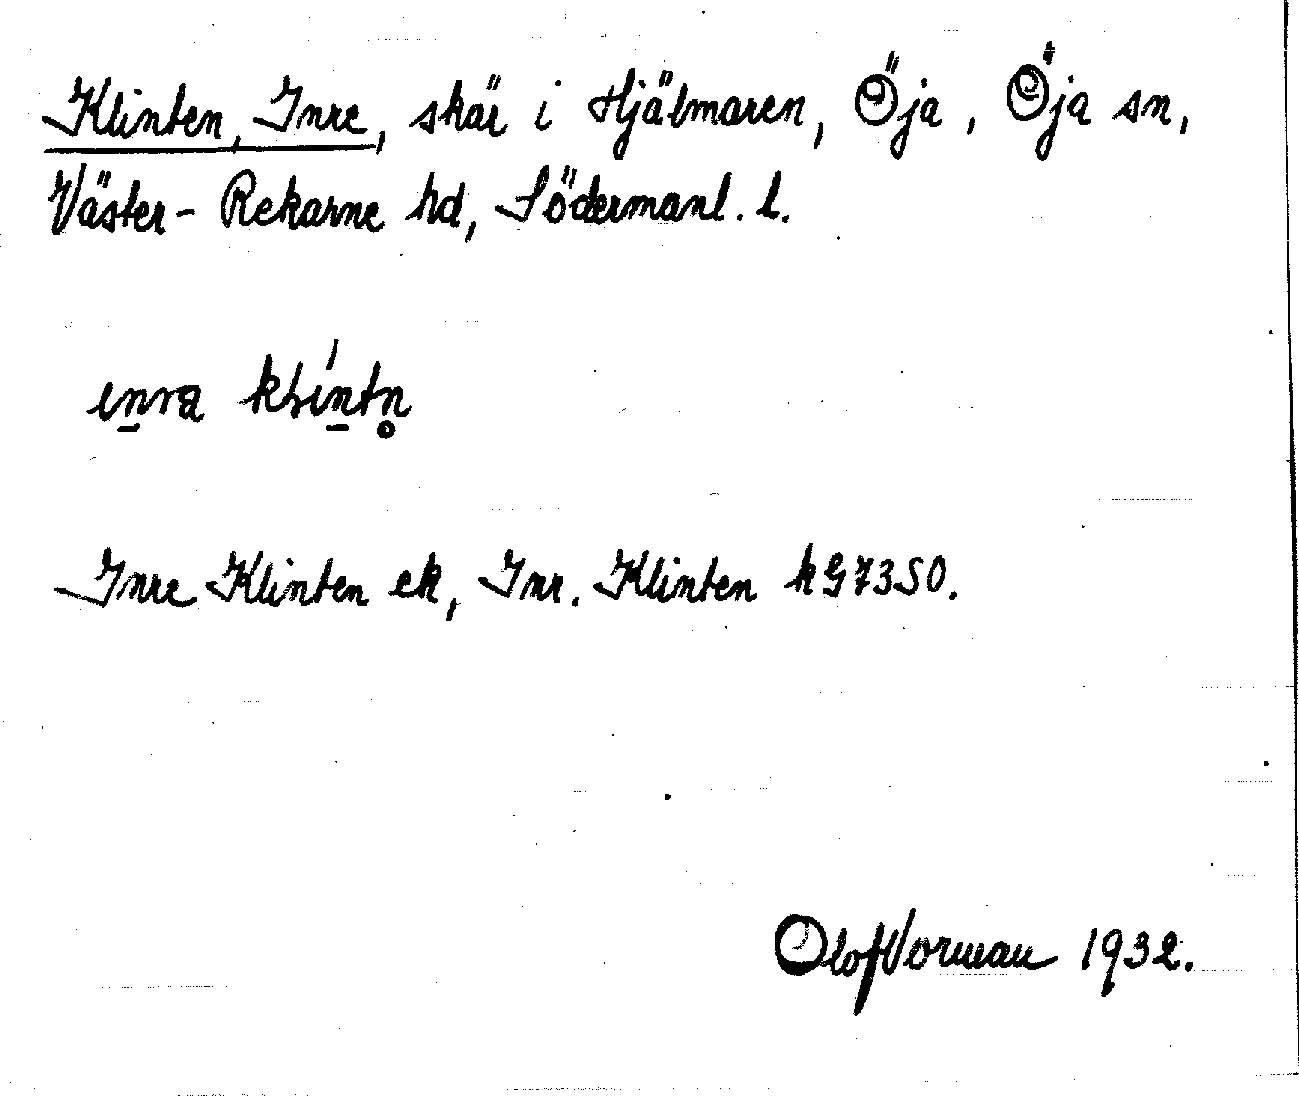 Klinten, Inre, skär i Hjälmaren, Öja, Öja sn,
Väster-Rekarne hd, Södermanl. l.
ın̠ra klín̠tn̥
Inre Klinten ek, Inr. Klinten kG7350.
Olof Vorman 1932.